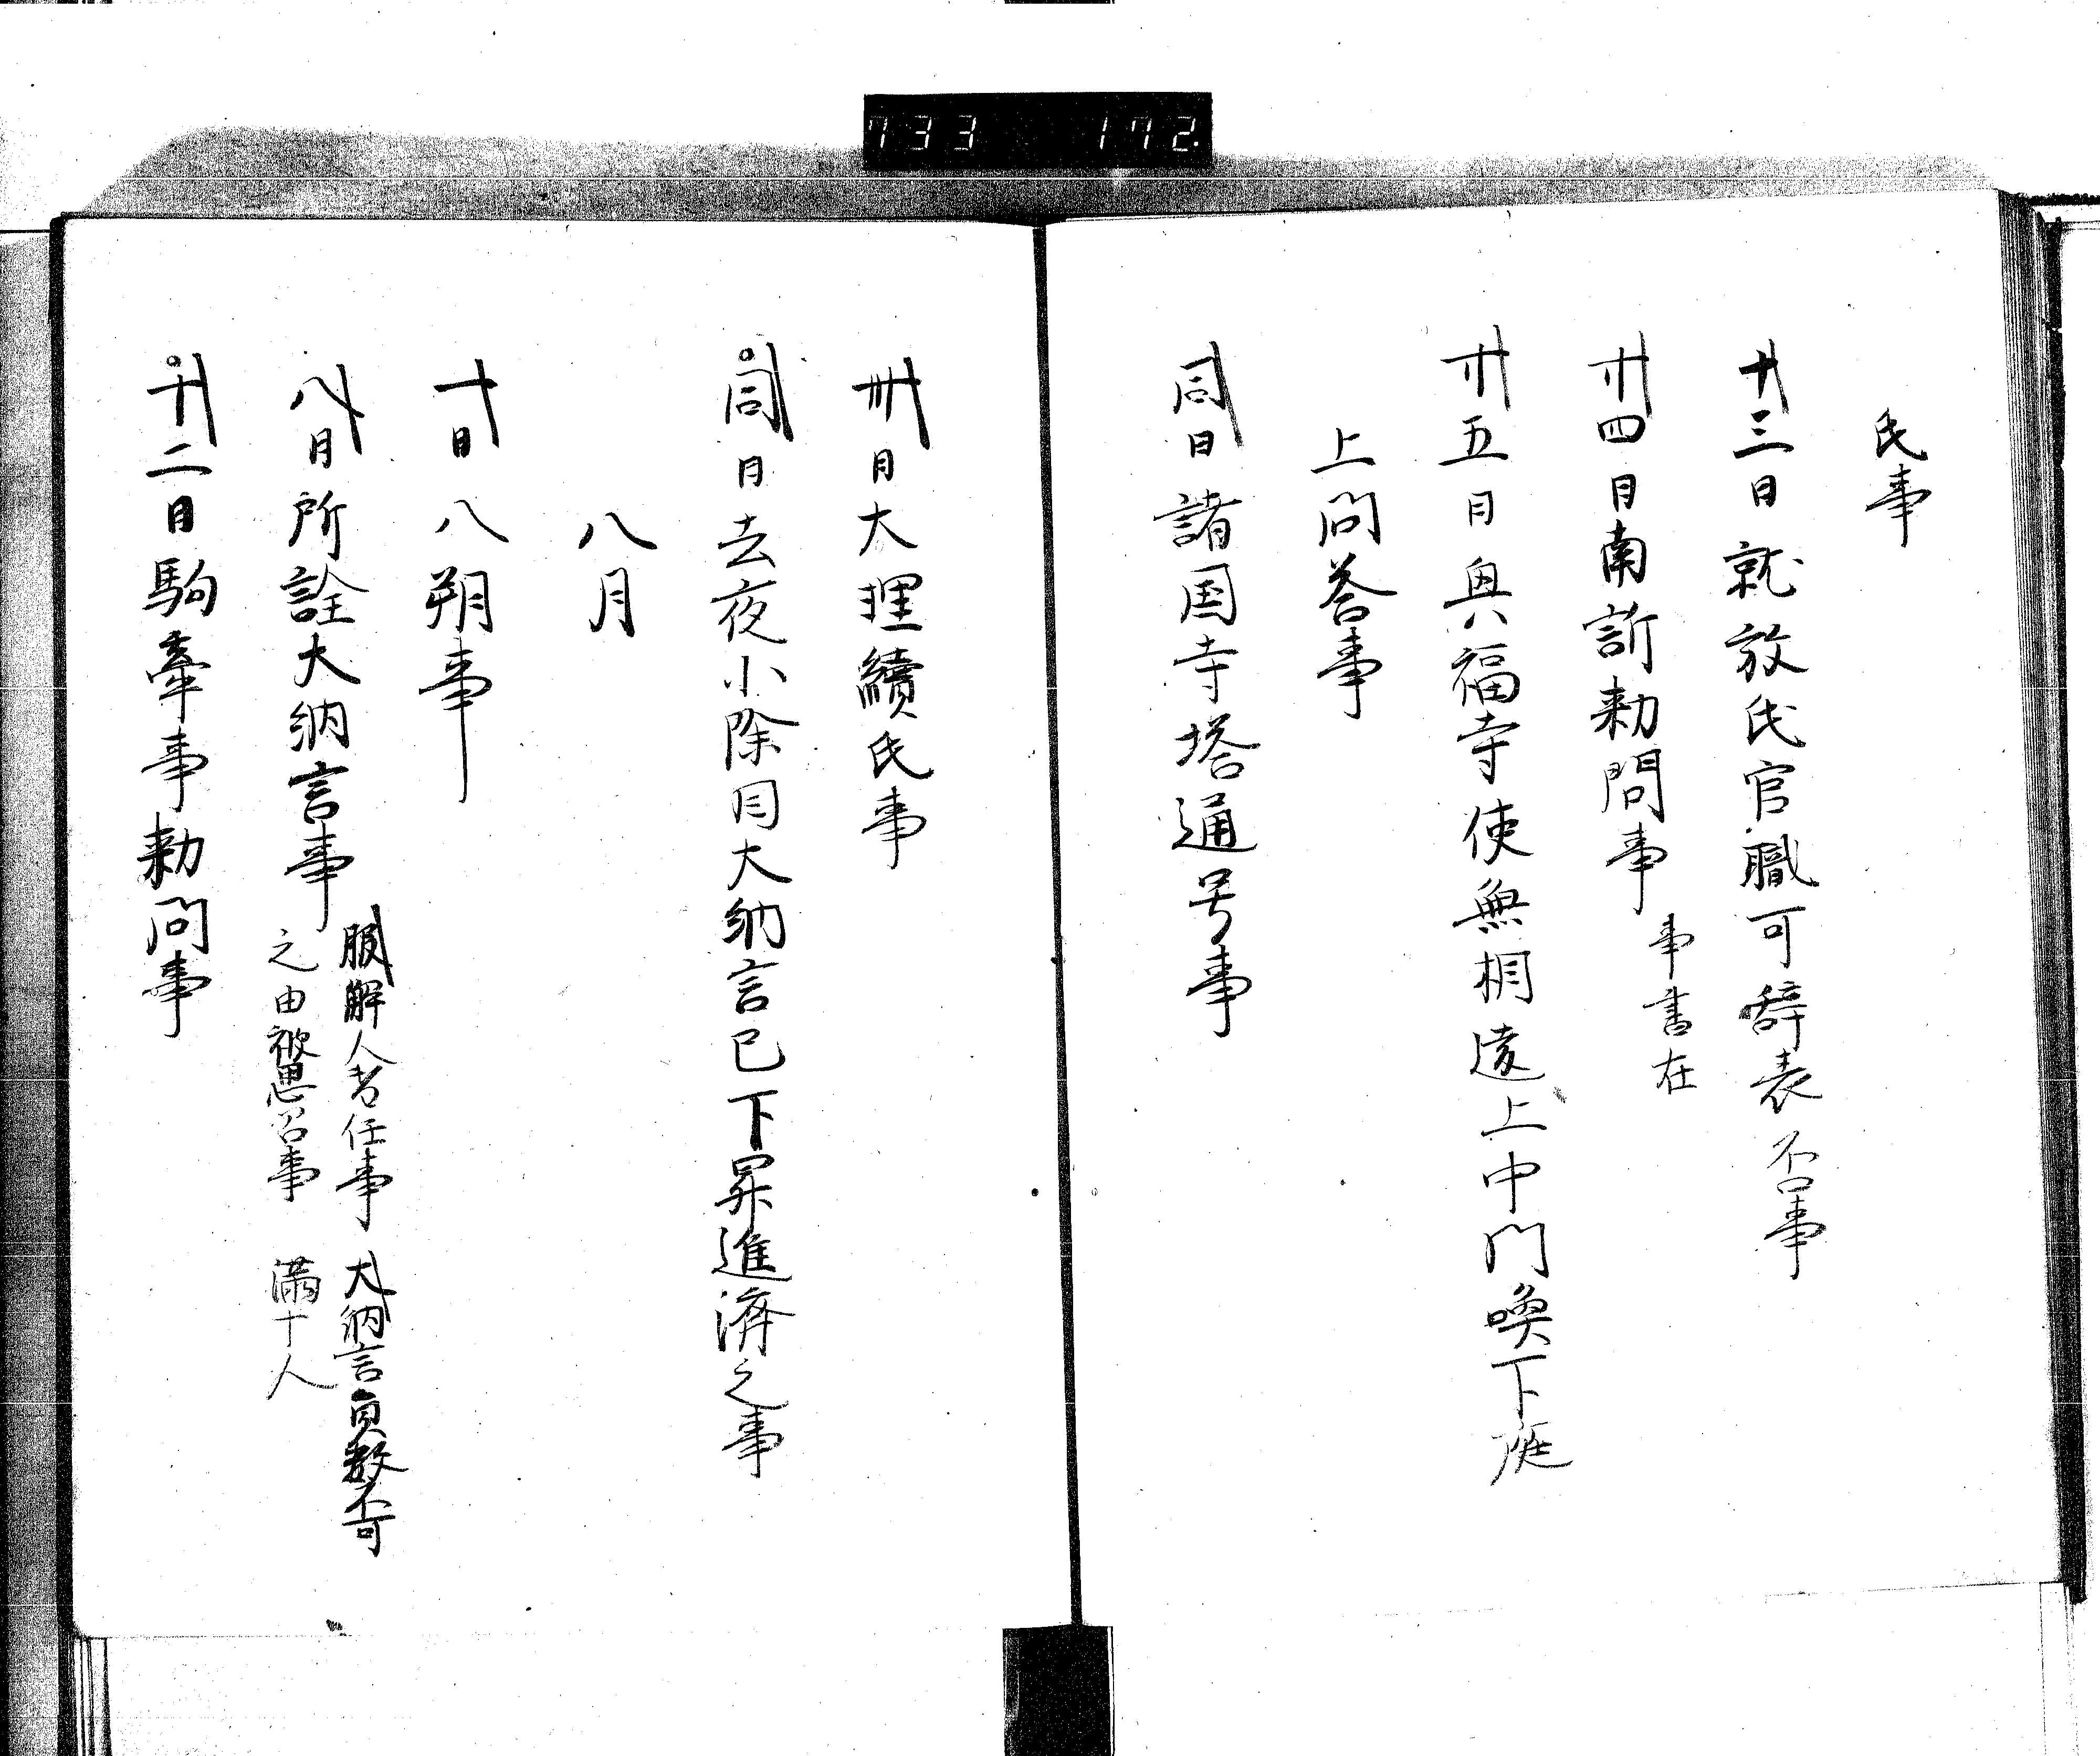 733 172.
氏事
廿三日就放氏官職可辞表否事
廿四日南訴勅問事 事書在
廿五日興福寺使無相違上中門喚下庭
上問答事
同日諸国寺塔通号事
卅日大理續氏事
同日去夜小除目大納言已下昇進済之事
八月
一日八朔事
八日所詮大納言事
服解人者任事 大納言員数不可
之由被思召事 満十人
十二日駒牽事勅問事